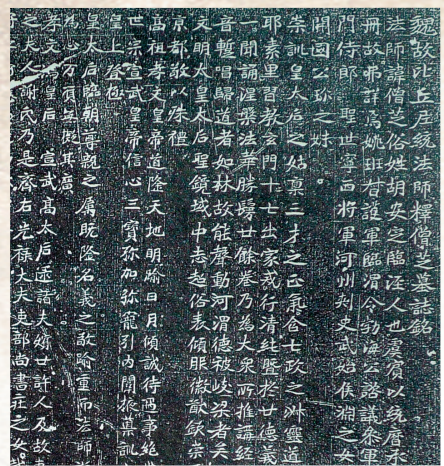 魏故比丘尼統法師釋僧芝墓誌銘
法師諱僧芝俗姓胡安定臨涇人也虞賓以統曆承
冊故弗詳焉姚班督護軍臨渭令勃海公咨議參軍
門侍郎聖世寧西將軍河州刺史武始侯淵之女
開國公珍之妹
崇訓皇太后之姑稟三才之正氣含七政之淑靈道
耶素里習教玄門十七出家戒行清純暨於廿德義
一聞誦涅槃法華勝鬘廿餘卷乃為大眾所推講經
音蹔唱歸道者如林故能聲動河渭德被岐梁者矣
文明大皇太后聖鏡域中志超俗表傾服徽猷欽崇
京都敬以殊禮
高祖孝文皇帝道隆天地明踰日月傾誠待遇事絕
世宗宣武皇帝信心三寶弥加弥寵引內閨掖導訓
皇上登極
皇太后臨朝尊親之屬既隆名義之敬踰重而法師
心方頂無礙其廣
孝文馮皇后宣武高太后逮諸夫嬪廿許人及故車
之夫人謝氏乃是齊右光祿大夫吏部尚書莊之女